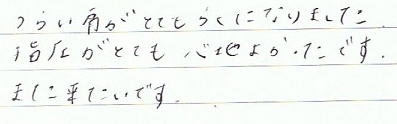 つらい肩がとてもらくになりました.
指圧がとても心地よかったです.
また来たいです.